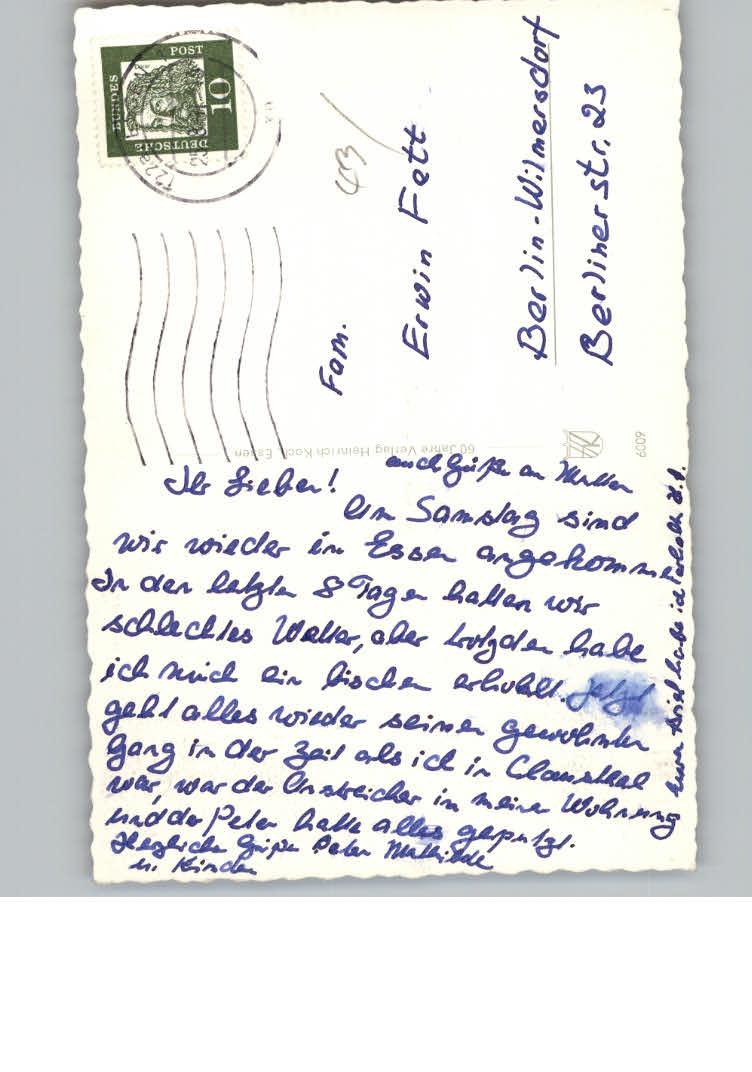 DEUTSCHE
BUNDES
POST
10
Fam.
Erwin Fett
Berlin-Wilmersdorf
Berlinerstr. 23
60 Jahre Verlag Heinrich Koch, Essen
6009
auch Grüße an Mutter
Ihr Lieben!
Am Samstag sind
wir wieder in Essen angekommen
In den letzten 8 Tagen hatten wir
schlechtes Wetter, aber trotzden habe
ich mich ein bischen erhohlt. Jetzt
geht alles wieder seinen gewohnten
Gang in der Zeit als ich in Clausthal
war, war der Anstreicher in meiner Wohnung
und der Peter hatte alles geputzt.
Herzliche Grüße Peter Mathilde
u. Kinder
Euren Brief habe ich erhalten